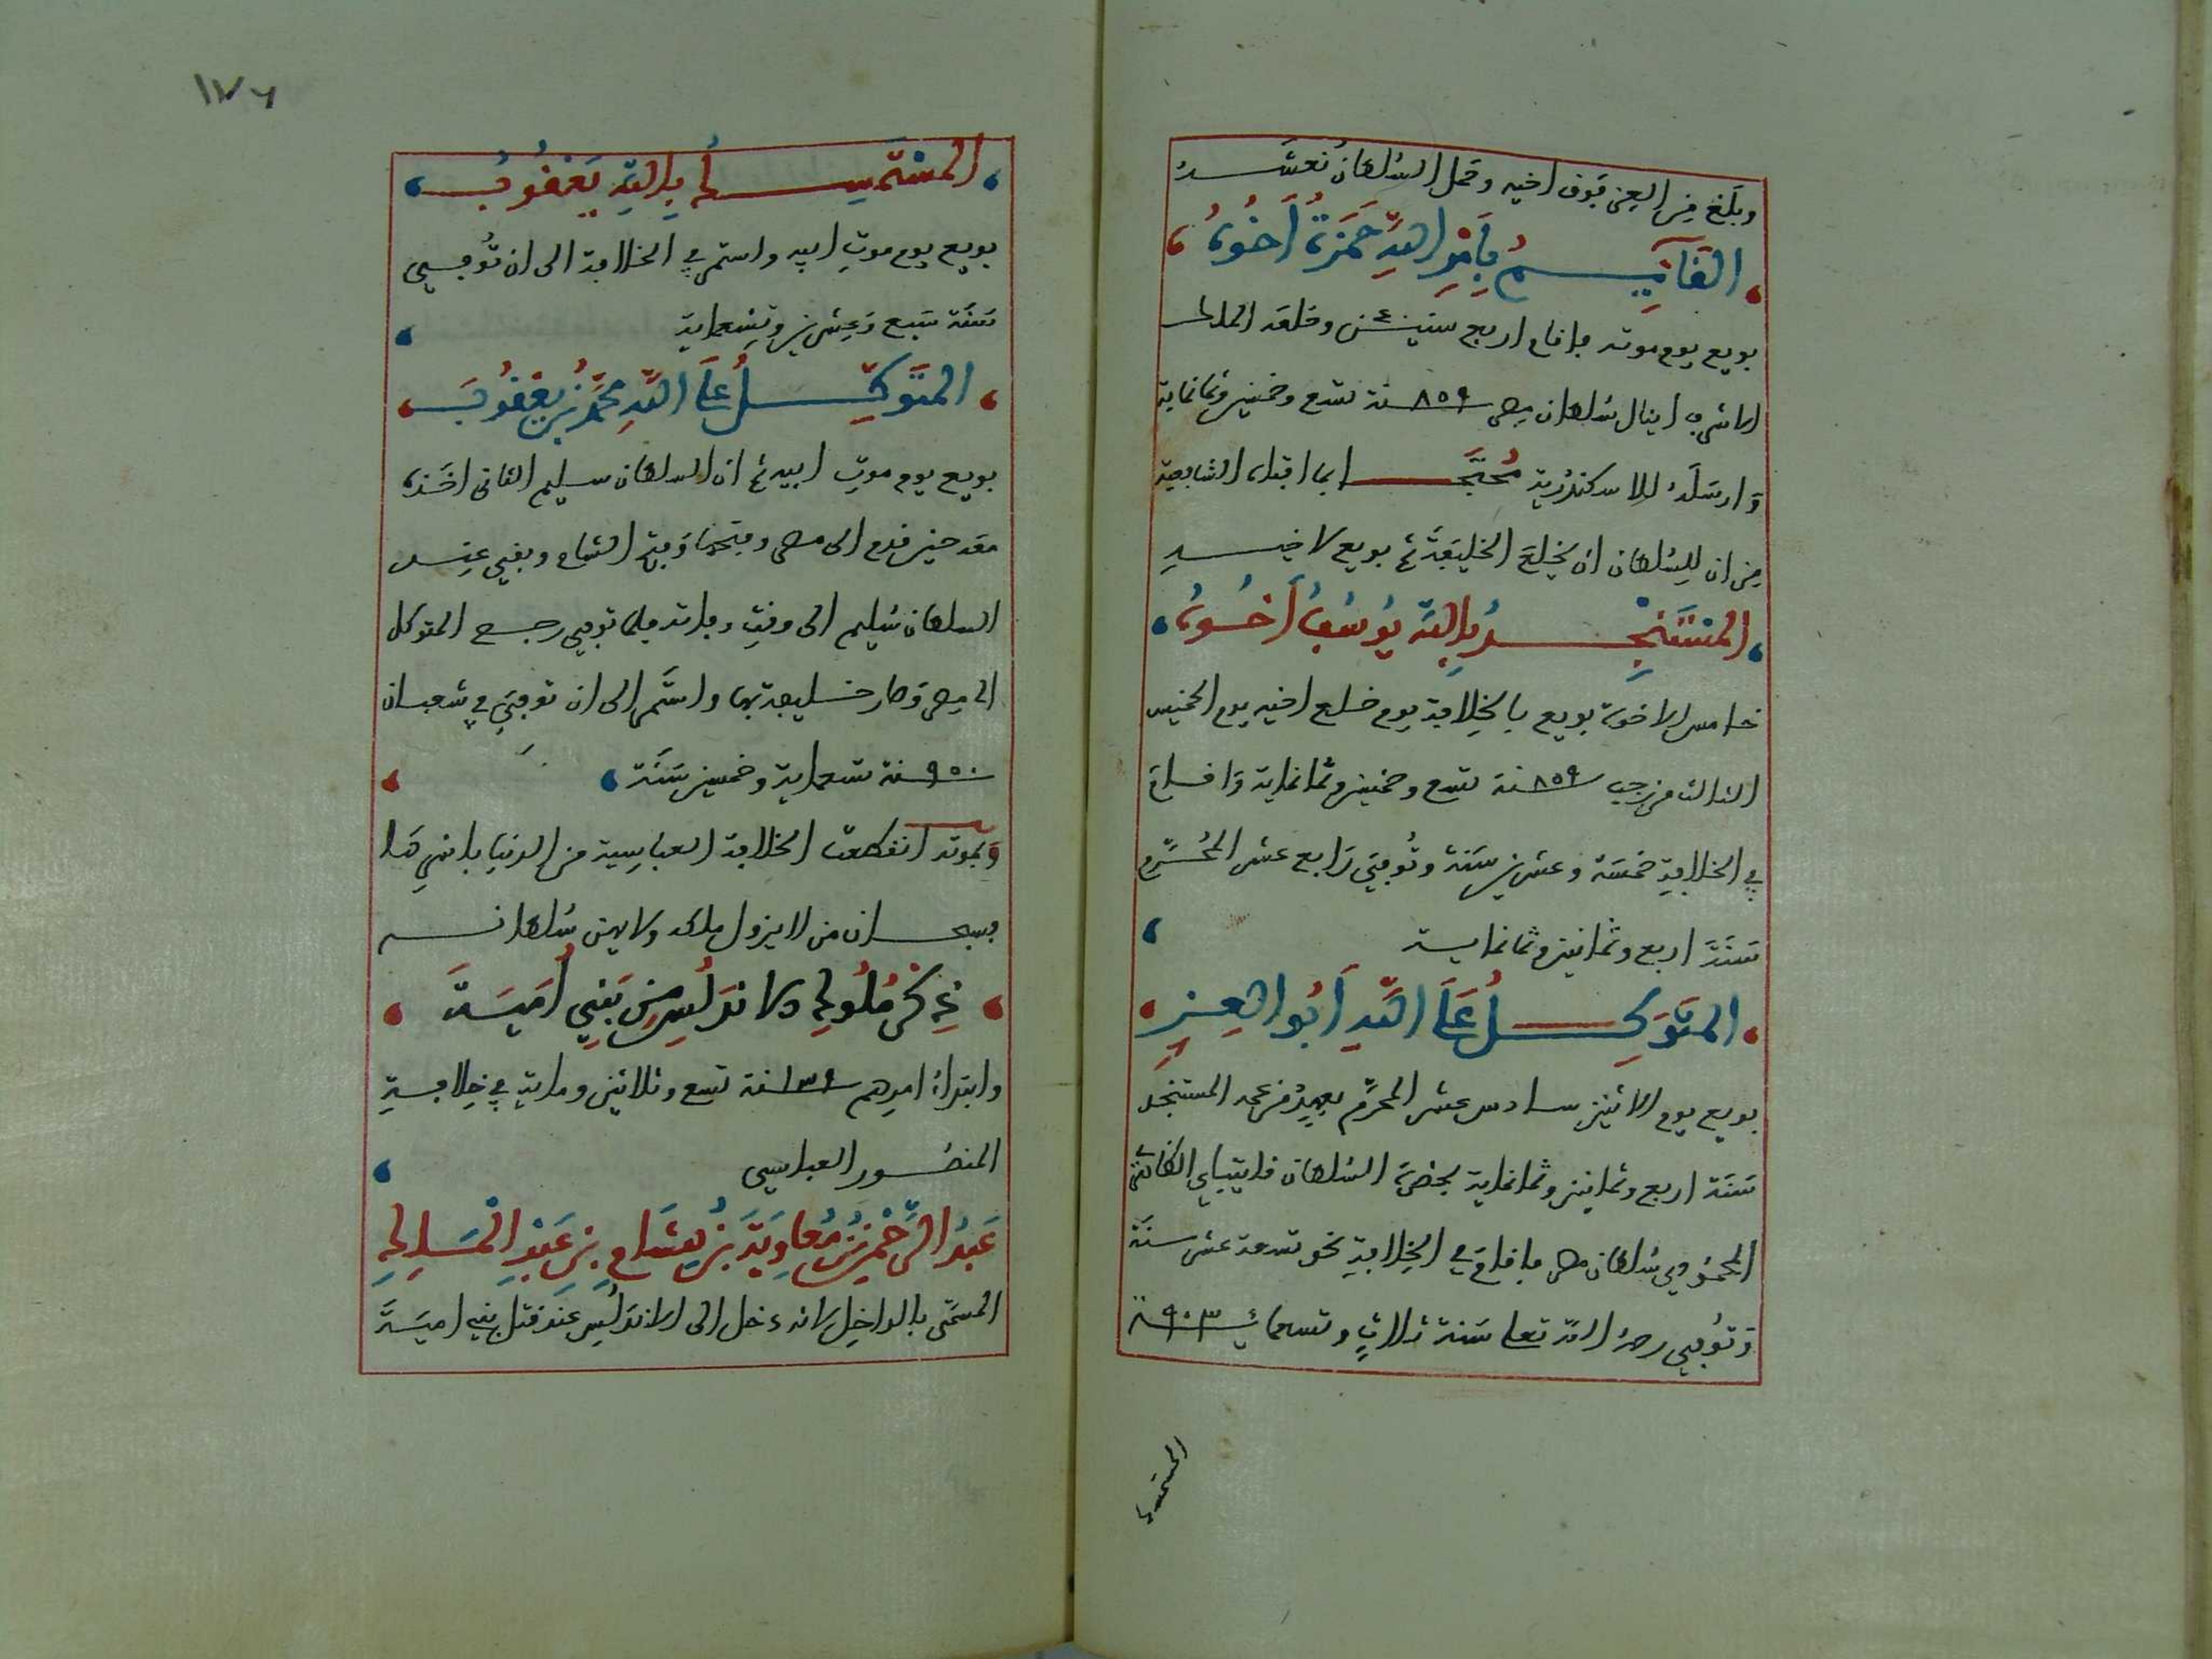 وبلغ من العز فوق اخيه وحمل السلطان نعشه
القايم بامر الله حمزة اخوه
بويع يوم موته فاقام اربع سنين ثم خلعه الملك
الاشرف اينال سلطان مصر ٨٥٩ سنة تسع وخمسين وثمانماية
وارسله للاسكندرية محتجا بما افتاه الشافعية
من ان للسلطان ان يخلع الخليفة ثم بويع لاخيه
المستنجد بالله يوسف اخوه
خامس الاخوة بويع بالخلافة يوم خلع اخيه يوم الخميس
الثالث من رجب ٨٥٩ سنة تسع وخمسين وثمانماية واقام
في الخلافة خمسة وعشرين سنة وتوفي رابع عشر المحرم
سنة اربع وثمانين وثمانماية
المتوكل على الله ابو العز
بويع يوم الاثنين سادس عشر المحرم بعهد من عمه المستنجد
سنة اربع وثمانين وثمانماية بحضرة السلطان قايتباي
المحمودي سلطان مصر فاقام في الخلافة نحو تسعة عشر سنة
وتوفي رحمه الله تعالى سنة ثلاث وتسعمائة ٩٠٣
المستمسك
١٧٦
المستمسك بالله يعقوب
بويع يوم موت ابيه واستمر في الخلافة الى ان توفي
سنة سبع وعشرين وتسعماية
المتوكل على الله محمد بن يعقوب
بويع يوم موت ابيه ثم ان السلطان سليم الثاني اخذه
معه حين قدم الى مصر وفتحها وفتح الشام وبقي عند
السلطان سليم الى وقت وفاته فلما توفي رجع المتوكل
الى مصر وصار خليفة بها واستمر الى ان توفي في شعبان
٩٥٠ سنة تسعماية وخمسين سنة
وبموته انقطعت الخلافة العباسية من الدنيا باسرها
فسبحان من لا يزول ملكه ولا يهن سلطانه
ذكر ملوك الاندلس من بني امية
وابتداء امرهم ١٣٩ سنة تسع وثلاثين وماية في خلافة
المنصور العباسي
عبد الرحمن بن معاوية بن هشام بن عبد الملك
المسمى بالداخل لانه دخل الى الاندلس عند قتل بني امية